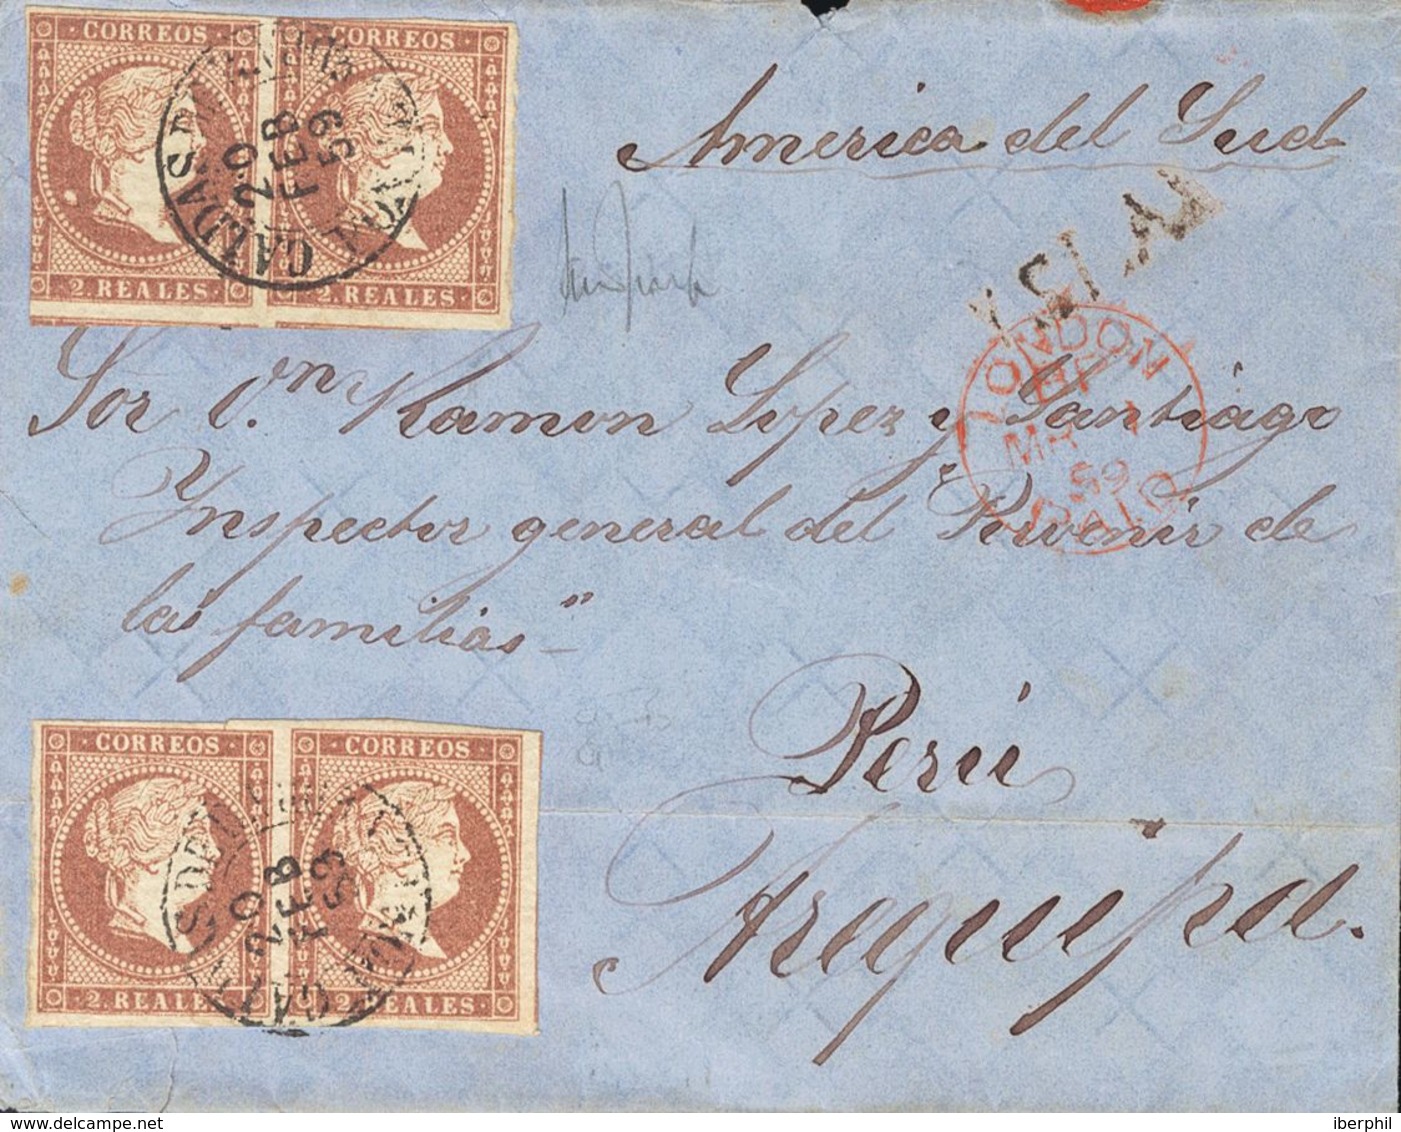 CORREOS CORREOS
CALDAS DE
20
FEB
59
2. REALES. 2. REALES.
America del Sud
LONDON
MR 1
59
PAID
Sor Dn Ramon Lopez y Santiago
Ynspector general del "Porvenir de
las familias"
Perú
Arequipa.
CORREOS CORREOS
20
FEB
59
2. REALES. 2 REALES.
www.delcampe.net
iberphil